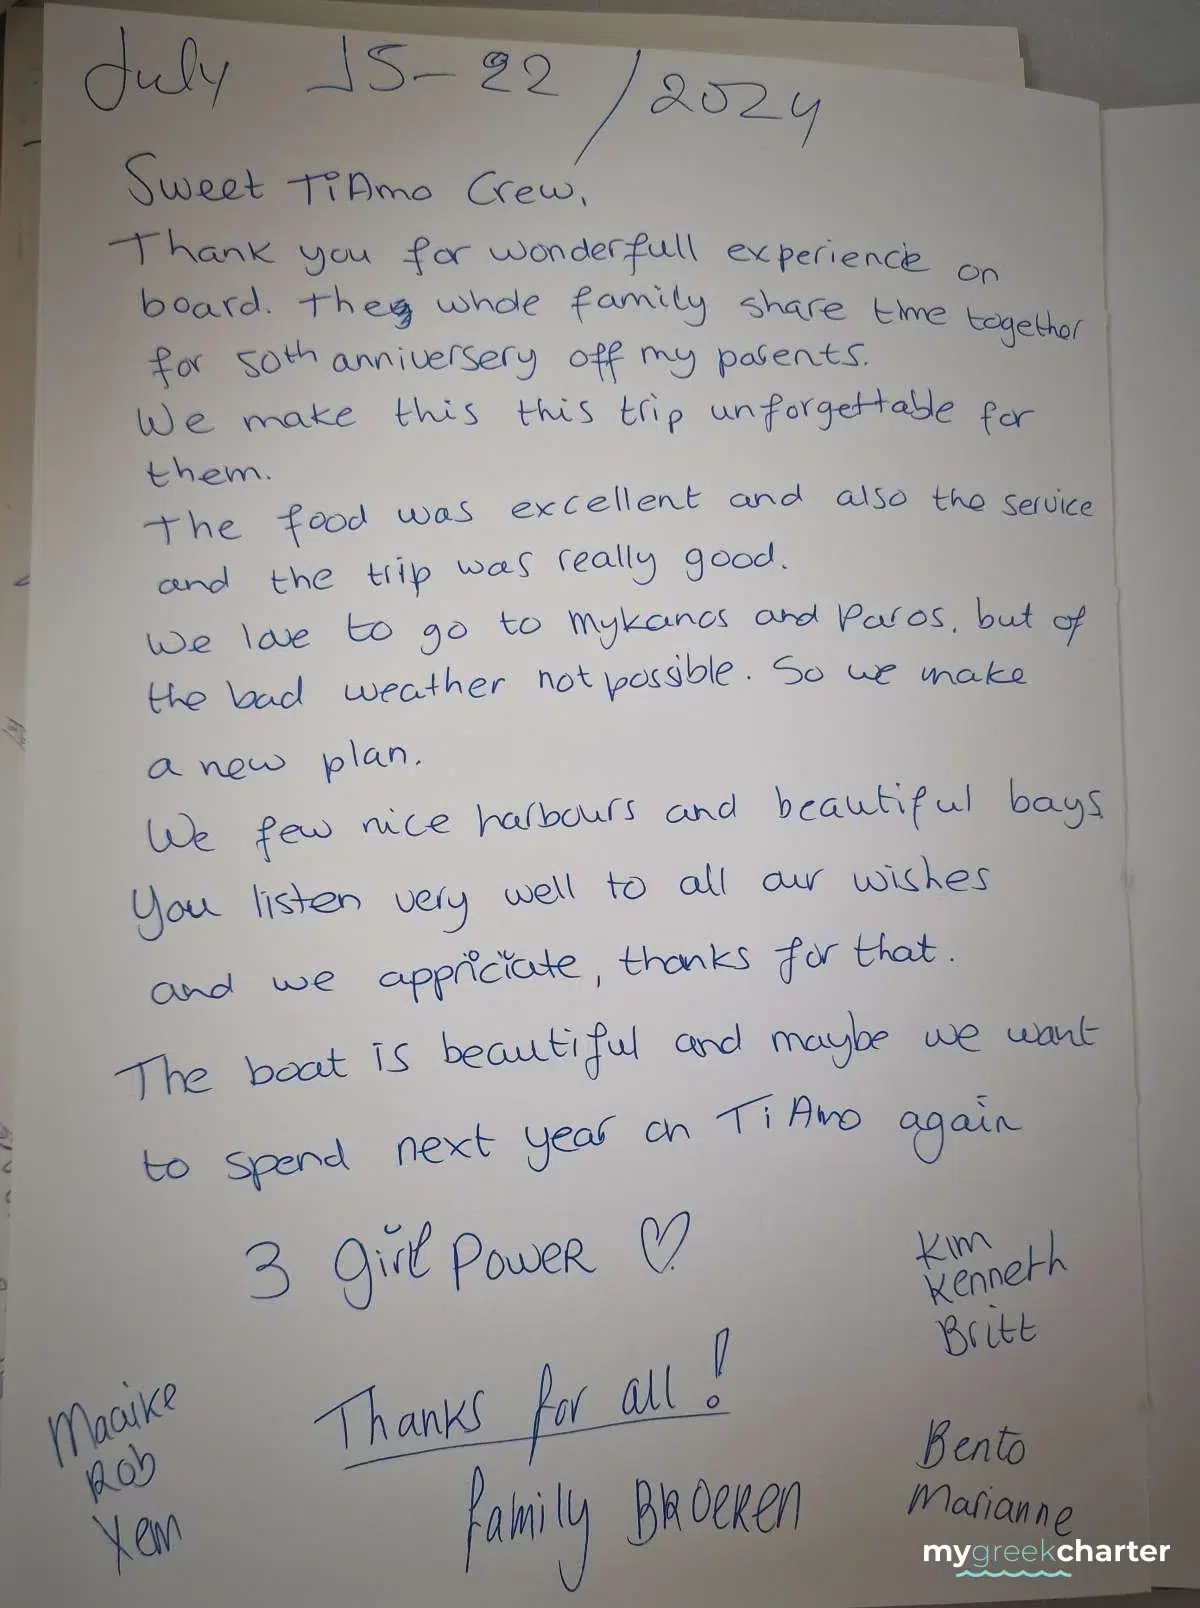 July 15-22/2024
Sweet TiAmo Crew,
Thank you for wonderfull experience on
board. The whole family share time together
for 50th anniversery off my parents.
We make this this trip unforgettable for
them.
The food was excellent and also the service
and the trip was really good.
We love to go to mykanos and Paros, but of
the bad weather not possible. So we make
a new plan.
We few nice harbours and beautiful bays
You listen very well to all our wishes
and we appriciate, thanks for that.
The boat is beautiful and maybe we want
to spend next year on TiAmo again
3 girl POWER ♡
Kim
Kenneth
Britt
Thanks for all!
Maaike
Rob
Xem
Bento
Marianne
family BROEREN
mygreekcharter